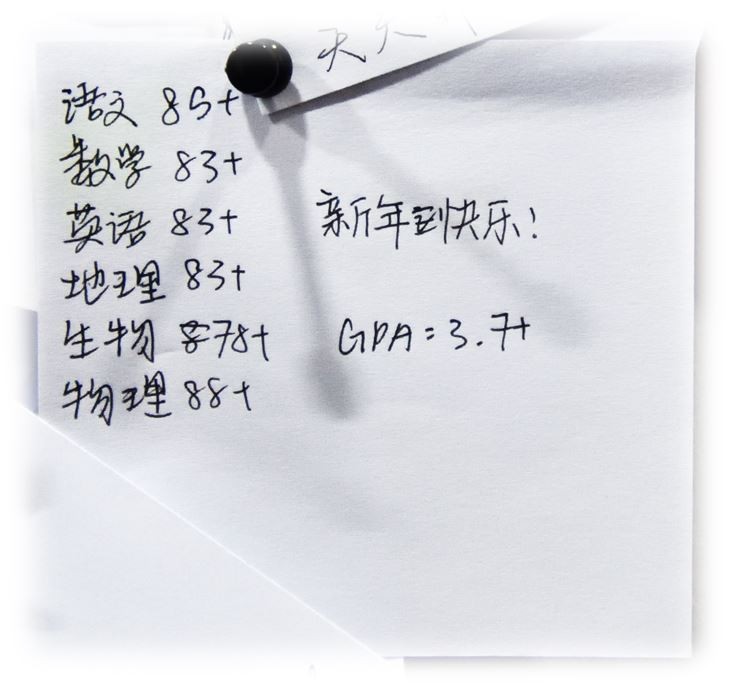 天天
语文 85+
数学 83+
英语 83+
新年到快乐!
地理 83+
生物 78+
GPA=3.7+
物理 88+